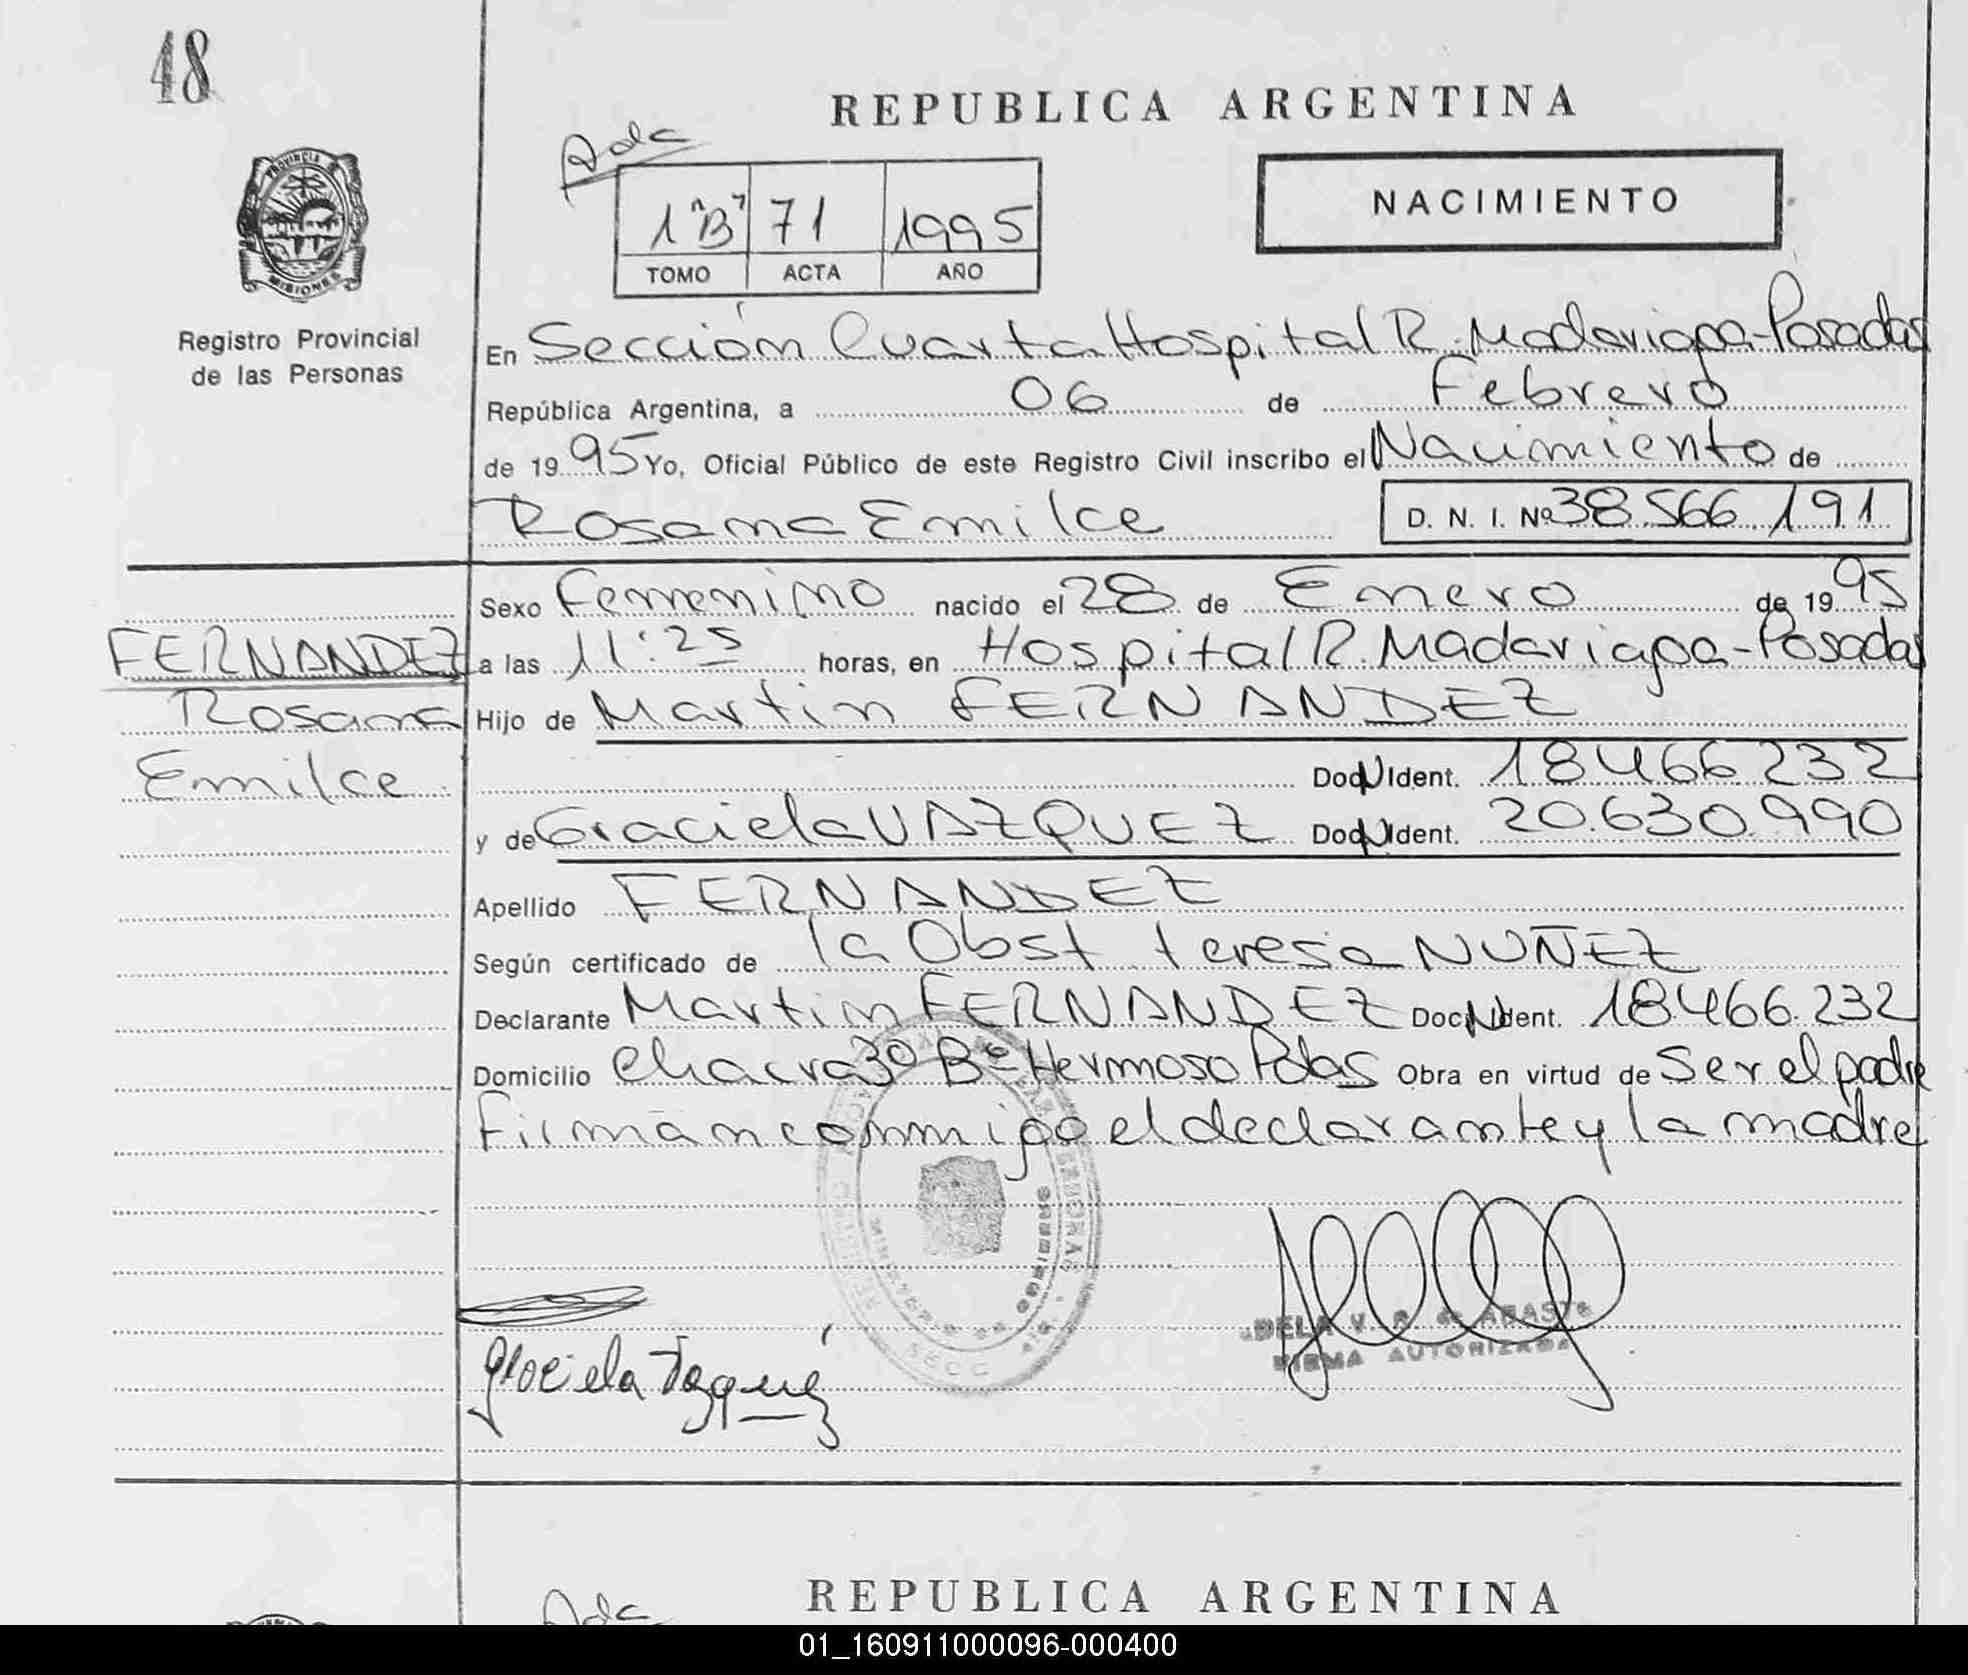 48
REPUBLICA ARGENTINA
Adc
1 "B" 71 1995
TOMO ACTA AÑO
NACIMIENTO
PROVINCIA
MISIONES
Registro Provincial
de las Personas
En Sección Cuarta Hospital R. Madariaga-Posadas
República Argentina, a 06 de Febrero
de 1995 Yo, Oficial Público de este Registro Civil inscribo el Nacimiento de
Rosana Emilce D. N. I. Nº 38.566.191
Sexo Femenino nacido el 28 de Enero de 1995
FERNANDEZ
Rosana
Emilce
a las 11:25 horas, en Hospital R. Madariaga-Posadas
Hijo de Martin FERNANDEZ
Doc N Ident. 18466232
y de Graciela VAZQUEZ Doc N Ident. 20.630.990
Apellido FERNANDEZ
Según certificado de la Obst teresa NUÑEZ
Declarante Martin FERNANDEZ Doc N Ident. 18466.232
Domicilio Chacra 30 Bº Hermoso Pdas Obra en virtud de Ser el padre
Firman conmigo el declarante y la madre
SECC
Graciela
DELA V. R. de ABAST
FIRMA AUTORIZADA
REPUBLICA ARGENTINA
Adc
01_160911000096-000400